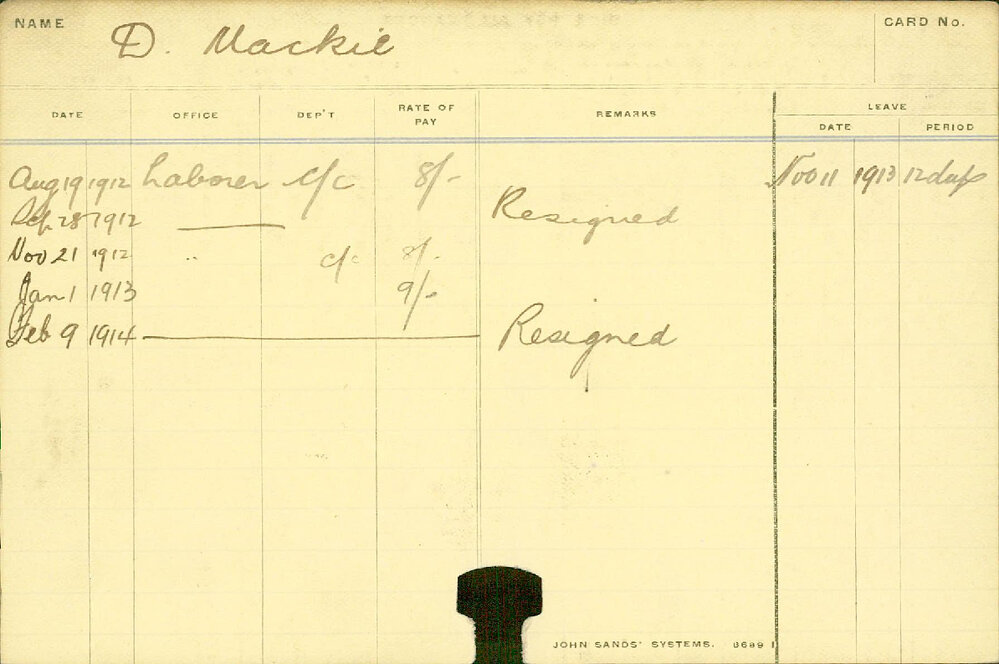 NAME D. Mackie CARD No.
LEAVE
DATE OFFICE DEP'T RATE OF PAY REMARKS DATE PERIOD
Aug 19 1912 Laborer C/c 8/- Nov 11 1913 12 days
Sep 28 1912 Resigned
Nov 21 1912 " c/c 8/-
Jan 1 1913 9/-
Feb 9 1914 Resigned
JOHN SANDS' SYSTEMS. 8689 1